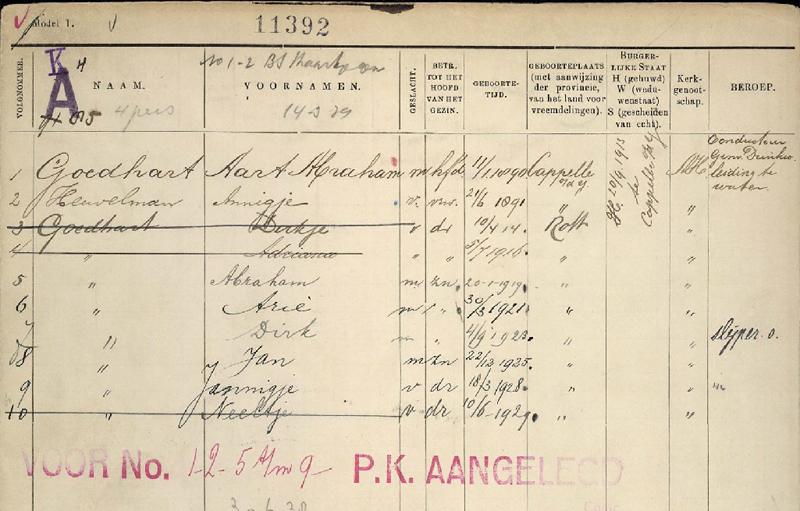 Model 1.
11392
VOLGNOMMER.
K
A
NAAM.
4 pers
No 1-2 BS
VOORNAMEN.
14-3 39
GESLACHT.
BETR. TOT HET HOOFD VAN HET GEZIN.
GEBOORTE-TIJD.
GEBOORTEPLAATS (met aanwijzing der provincie, van het land voor vreemdelingen).
BURGER-LIJKE STAAT H (gehuwd) W (weduwenstaat) S (gescheiden van echt).
Kerk-genoot-schap.
BEROEP.
1 Goedhart Aart Abraham m hfd 11/1 1890 Capelle a/d Y. H. 20/9 1913 te Capelle a/d Y NH Conducteur Gem. Drinkwaterleiding te water.
2 Heuvelman Annigje v. vrw. 21/6 1891 " "
3 Goedhart Dirkje " dr 10/4 14. Rott "
4 " Adriana " " 5/7 1916. " "
5 " Abraham m zn 20-1-1919. " "
6 " Arie m " 30/3 1921. " "
7 " Dirk 4/9 1923. " slijper.
8 " Jan m zn 22/12 1925. " "
9 " Jannigje v dr 18/3 1928. " "
10 " Neeltje v dr 10/6-1929. " "
VOOR No. 1-2-5 t/m 9 P.K. AANGELEGD